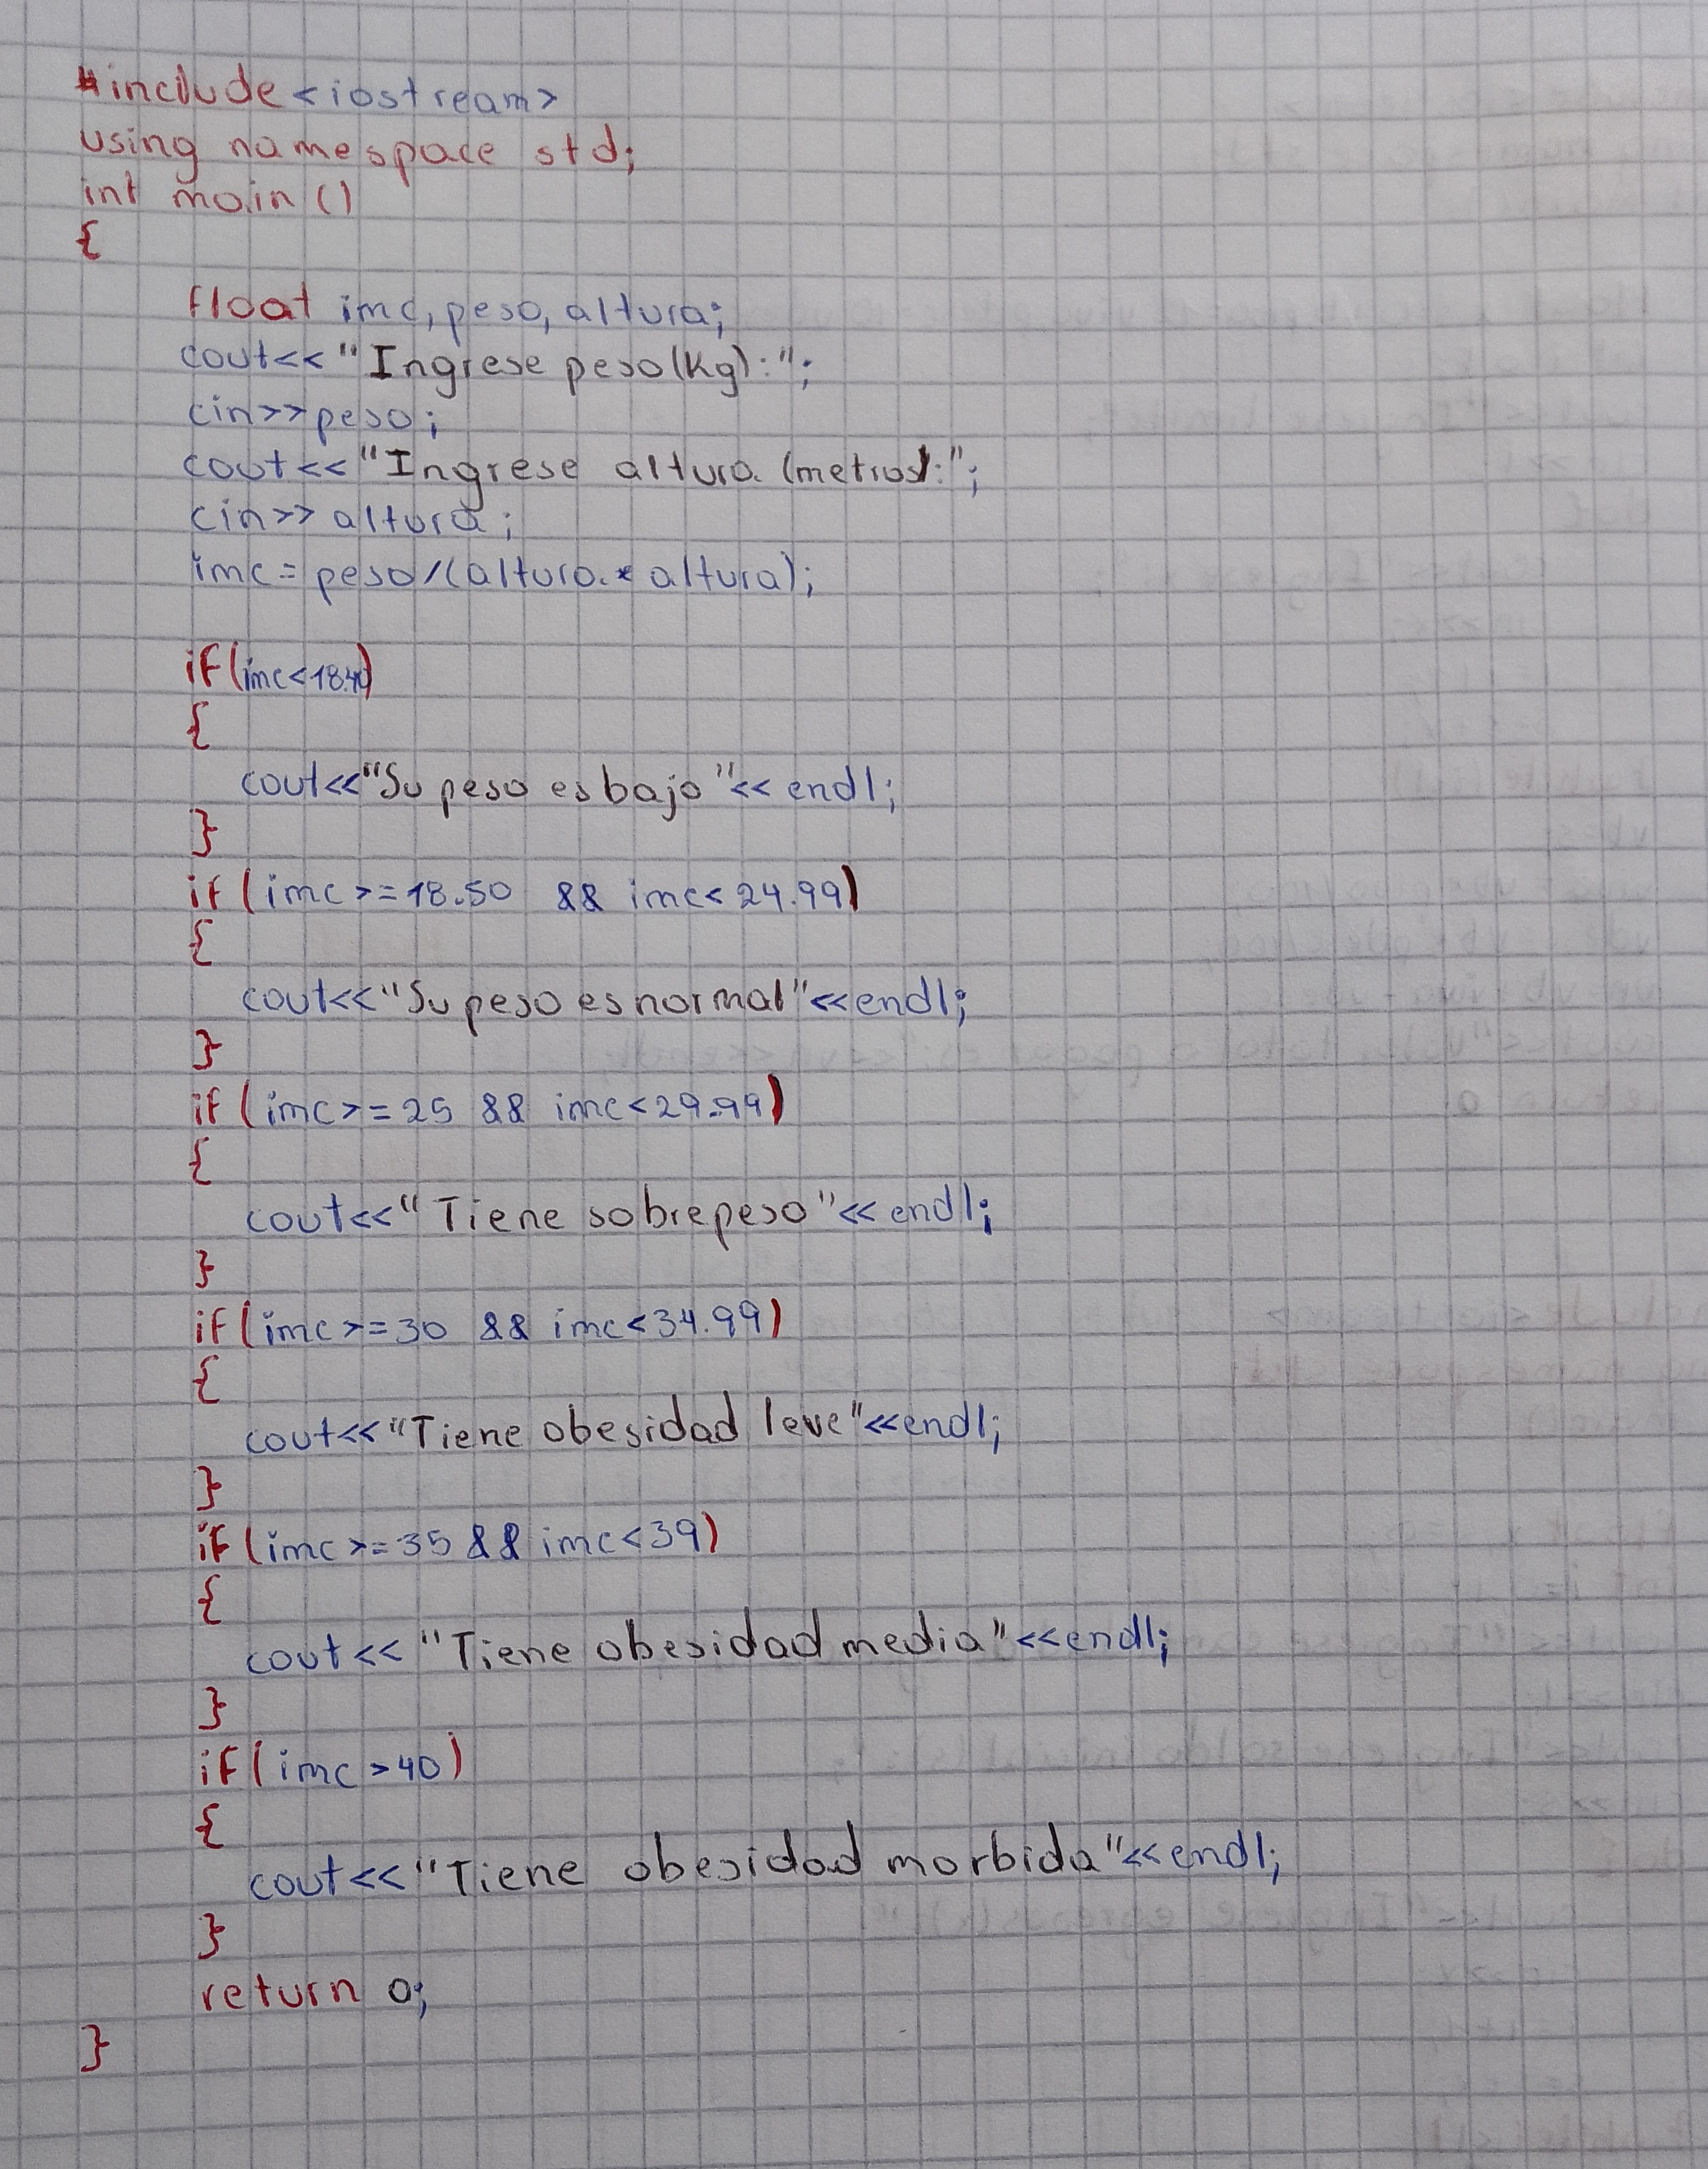 #include<iostream>
using namespace std;
int main()
{
float imc, peso, altura;
cout<<"Ingrese peso(Kg):";
cin>>peso;
cout<<"Ingrese altura (metros):";
cin>>altura;
imc=peso/(altura*altura);
if(imc<18.40)
{
cout<<"Su peso es bajo"<<endl;
}
if(imc>=18.50 && imc<24.99)
{
cout<<"Su peso es normal"<<endl;
}
if(imc>=25 && imc<29.99)
{
cout<<"Tiene sobrepeso"<<endl;
}
if(imc>=30 && imc<34.99)
{
cout<<"Tiene obesidad leve"<<endl;
}
if(imc>=35 && imc<39)
{
cout<<"Tiene obesidad media"<<endl;
}
if(imc>40)
{
cout<<"Tiene obesidad morbida"<<endl;
}
return 0;
}